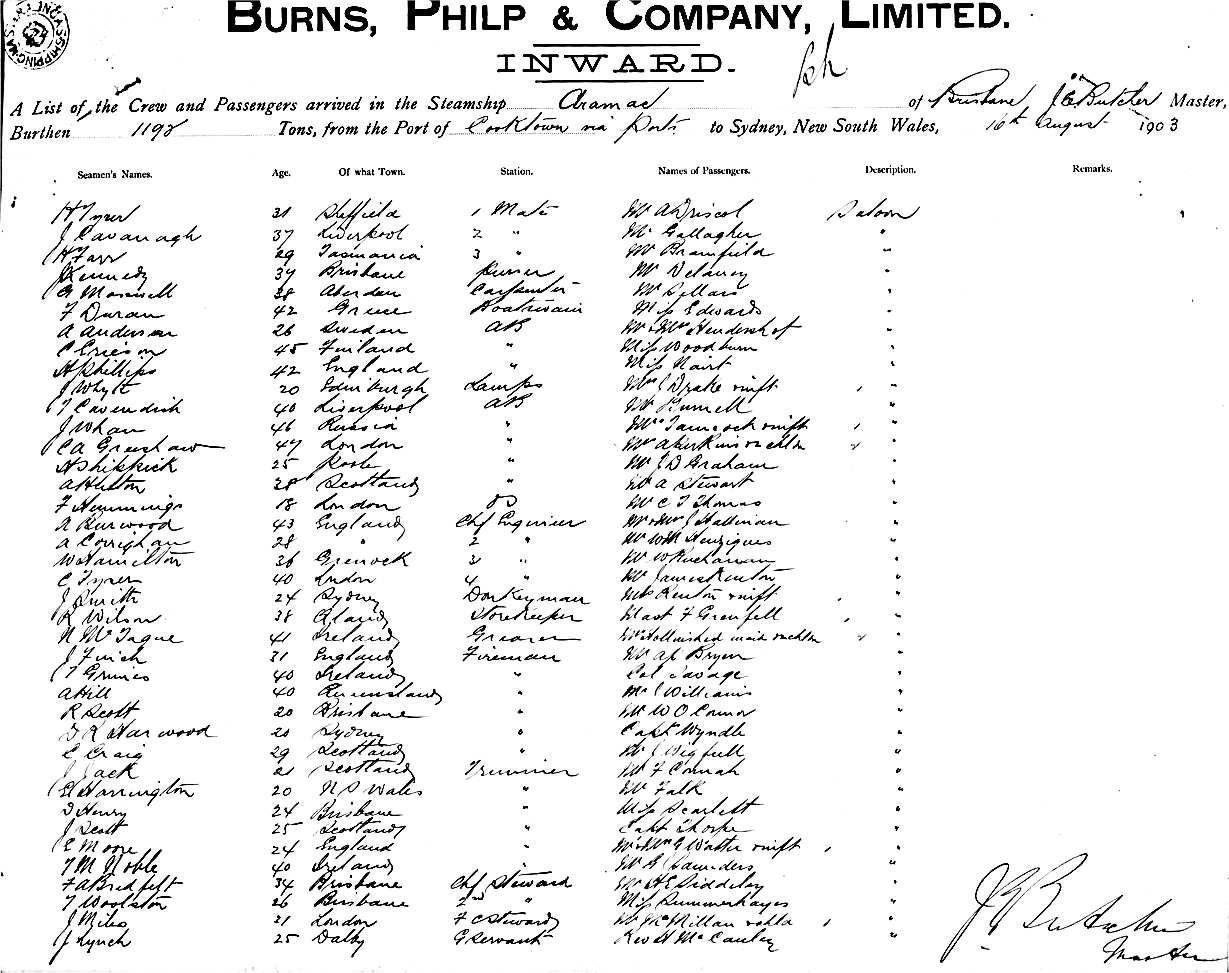 BURNS, PHILP & COMPANY, LIMITED.
INWARD.
A List of the Crew and Passengers arrived in the Steamship Aramac of Brisbane, J E Butcher Master,
Burthen 1198 Tons, from the Port of Cooktown via Ports to Sydney, New South Wales, 16th August 1903
Seamen's Names. Age. Of what Town. Station. Names of Passengers. Description. Remarks.
H Tyrer 31 Sheffield 1 Mate Mr A Driscol Saloon
J Cavanagh 37 Liverpool 2 " Mr Gallagher "
H Farr 29 Tasmania 3 " Mr Bramfield "
J Kennedy 39 Brisbane Purser Mr Delaney "
G Maxwell 38 Aberdeen Carpenter Mr Sellars "
F Duran 42 Greece Boatswain Miss Edwards "
A Anderson 26 Sweden AB Mr & Mrs Hendershot "
C Ericson 45 Finland " Miss Woodburn "
H Phillips 42 England " Miss Nairt "
J Whyte 20 Edinburgh Lamps Mrs J Drake & Inft "
T Cavendish 40 Liverpool AB Mr Burnell "
J Whan 46 Russia " Mrs & Inft "
C A Greeshaw 47 London " Mr A Perkins "
H Shippick 25 Poole " Mr J D Graham "
A 28 Scotland " Mr A Stewart "
F Hemmings 18 London OS Mr C T Thomas "
A Burwood 43 England Chf Engineer Mr & Mrs J Hallinan "
A Corrighan 28 " 2 " Mr W M Henriques "
W Hamilton 36 Greenock 3 " Mr W Buchanan "
C Tyrer 40 London 4 " Mr James Renton "
J Smith 24 Sydney Donkeyman Mrs Renton & Inft "
R Wilson 38 Storekeeper Mast F Grenfell "
N McTague 41 Ireland Greaser Mr "
J Finch 31 England Fireman Mr "
T Grimes 40 Ireland " Col Savage "
A Hill 40 Queensland " Mr J Williams "
R Scott 20 Brisbane " Mr W O Connor "
D R Harwood 20 Sydney " Capt Wyndle "
C Craig 29 Scotland " Mr J Bigfull "
J Jack 21 Scotland Trimmer Mr F Connah "
E Harrington 20 N S Wales " Mr Falk "
D Henry 24 Brisbane " Miss Scarlett "
J Scott 25 Scotland " Capt Thorpe "
E Moore 24 England " Mr & Mrs G Watter & Inft "
T M Noble 40 Ireland " Mr G Saunders "
F A Bredfelt 34 Brisbane Chf Steward Mr H E Siddeley "
T Woolston 26 Brisbane 2nd " Miss Summerhayes "
J Miles 21 London F C Steward Mr McMillan "
J Lynch 25 Dalby G Servant Rev H McCauley "
J E Butcher
Master